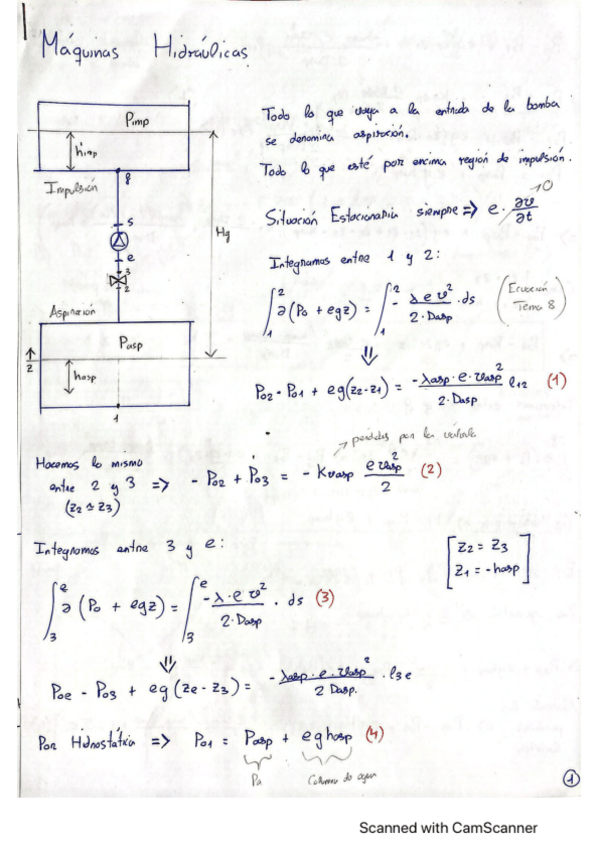 Máquinas Hidráulicas
Pimp
h'imp
8
Impulsión
s
e
3
2
Hg
Aspiración
Pasp
z
hasp
1
Todo lo que vaya a la entrada de la bomba
se denomina aspiración.
Todo lo que esté por encima región de impulsión.
Situación Estacionaria siempre => ρ · ∂v/∂t → 0
Integramos entre 1 y 2:
∫₁² ∂(P₀ + ρgz) = ∫₁² - λρv²/2·Dasp · ds (Ecuación Tema 8)
⇓
P₀₂ - P₀₁ + ρg(z₂-z₁) = -λasp·ρ·vasp²/2·Dasp l₁₂ (1)
pérdidas por la válvula
Hacemos lo mismo
entre 2 y 3 => - P₀₂ + P₀₃ = - Kvasp ρvasp²/2 (2)
(z₂ ≃ z₃)
Integramos entre 3 y e:
[z₂ = z₃
z₁ = -hasp]
∫₃ᵉ ∂(P₀ + ρgz) = ∫₃ᵉ -λ·ρv²/2·Dasp · ds (3)
⇓
P₀e - P₀₃ + ρg(ze - z₃) = -λasp·ρ·vasp²/2 Dasp. · l₃e
Por Hidrostática => P₀₁ = Pasp + ρghasp (4)
Pa
Columna de agua
1
Scanned with CamScanner